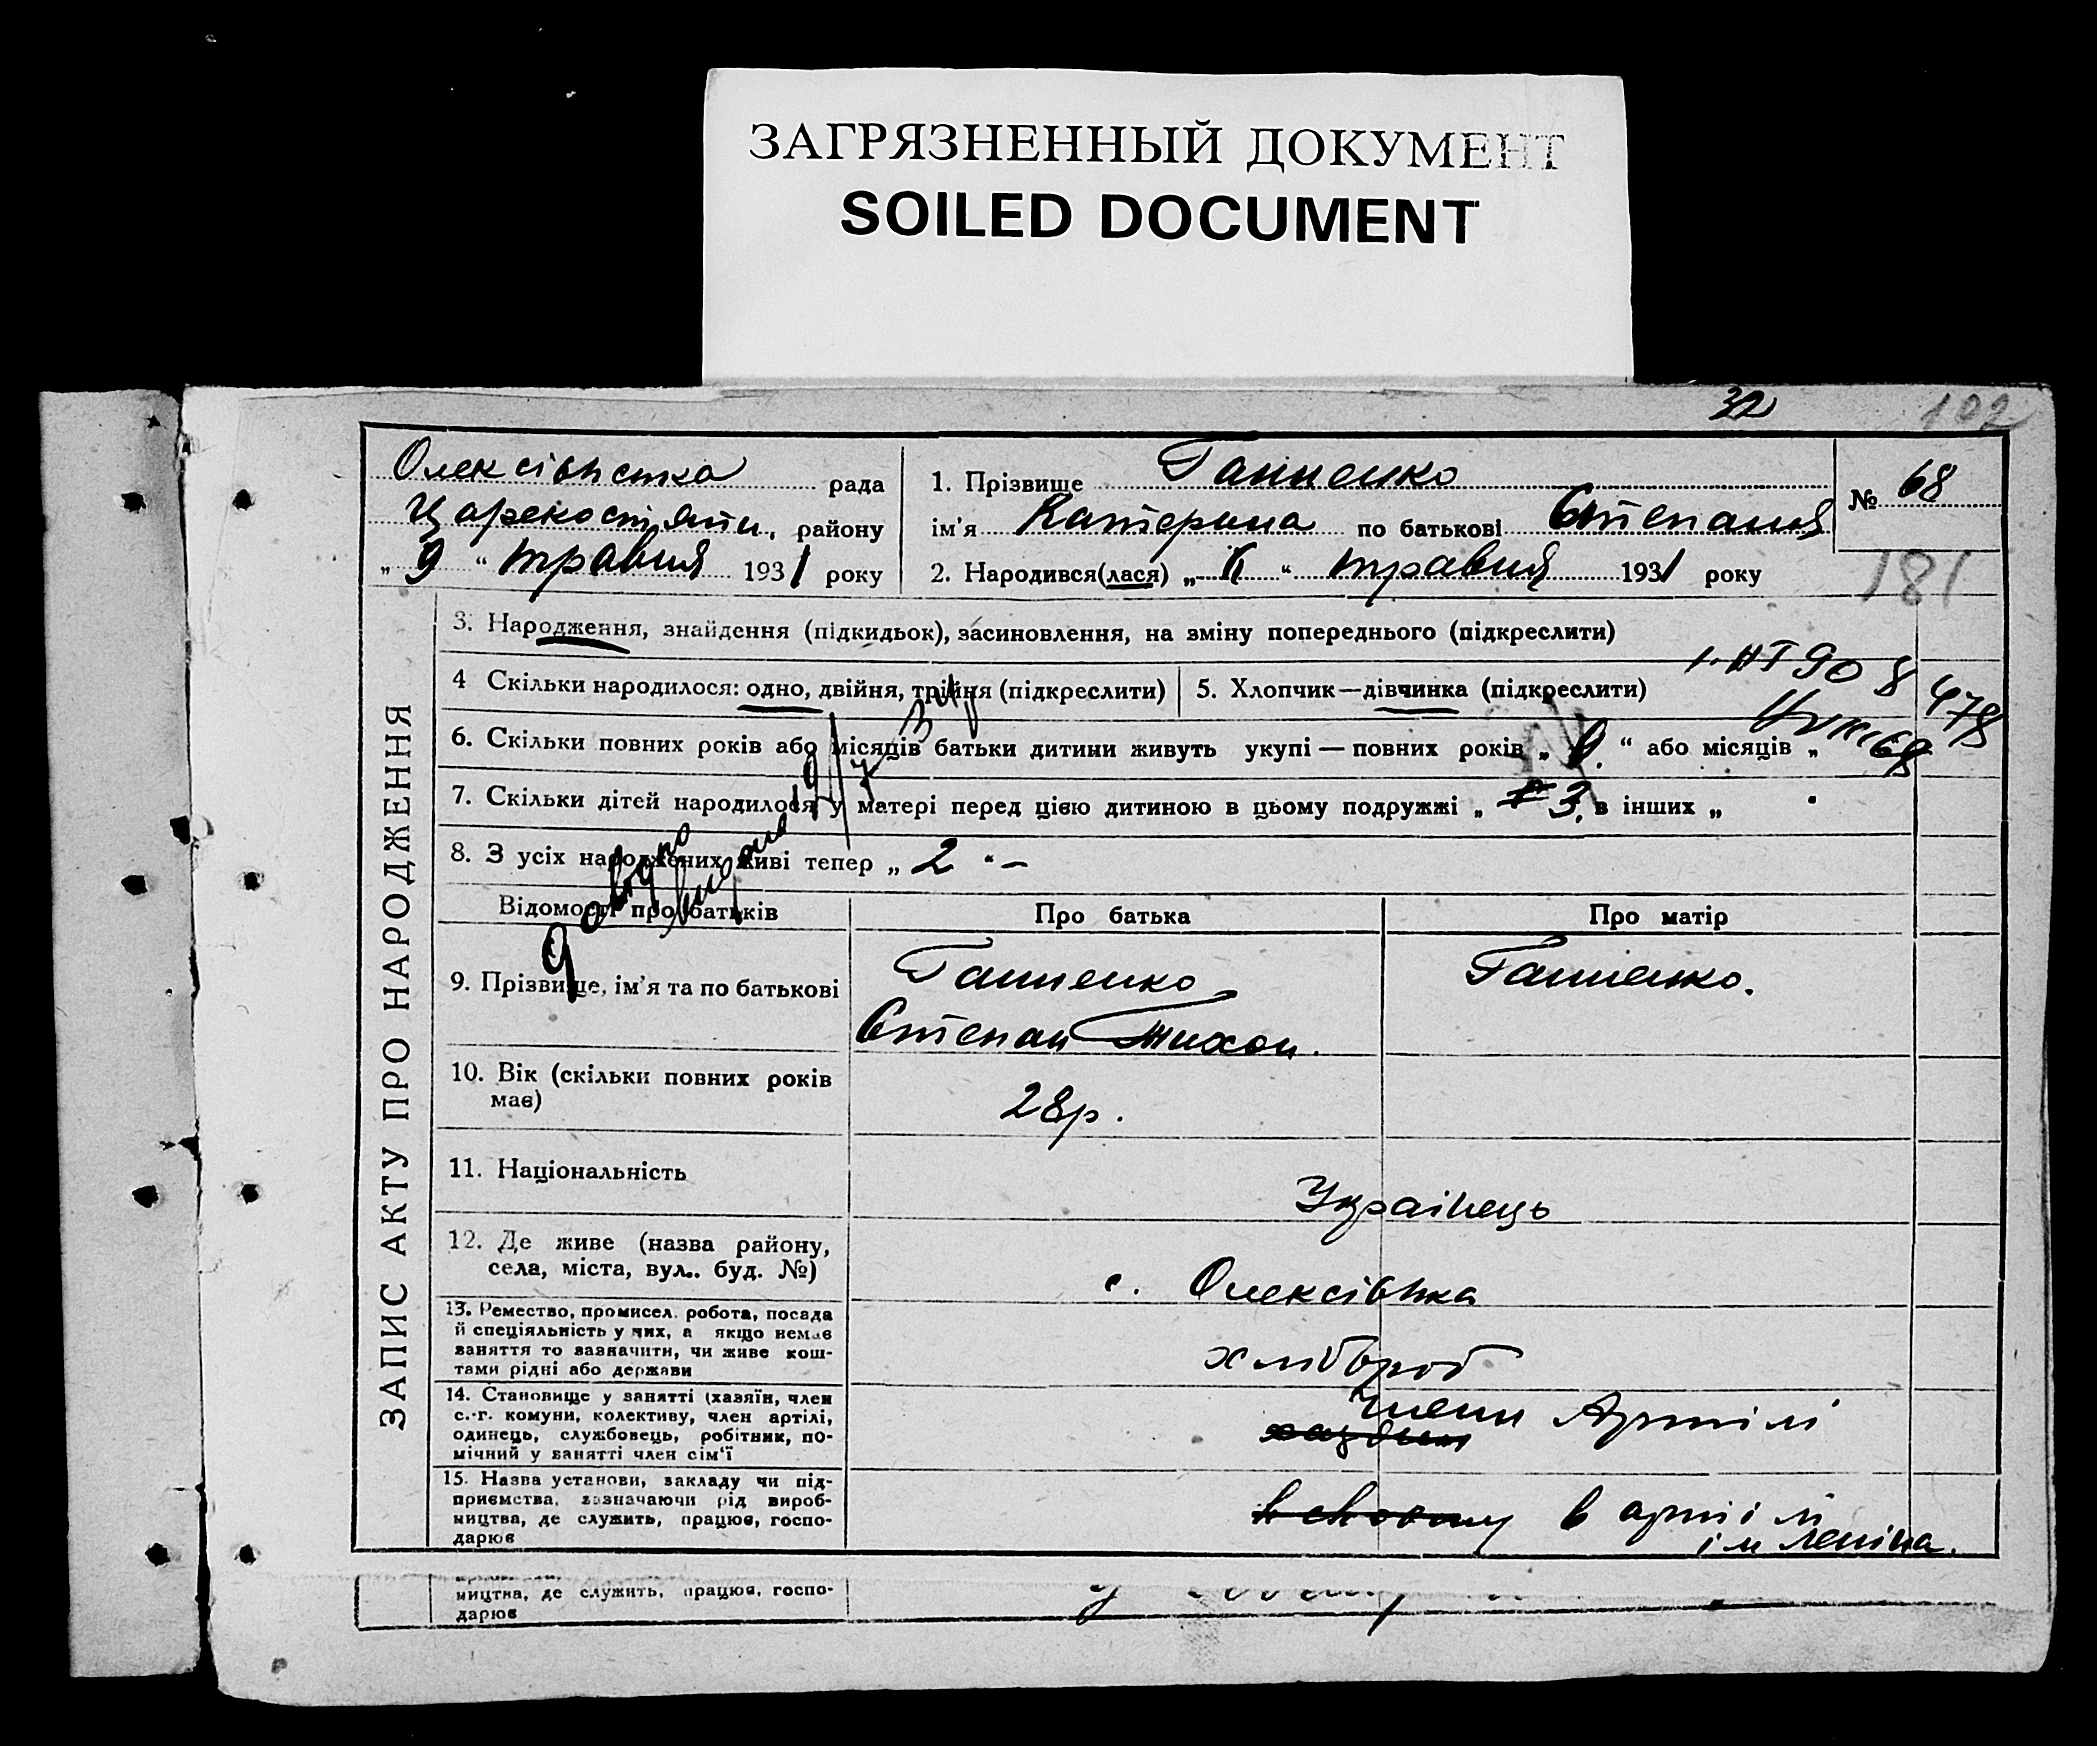 ЗАГРЯЗНЕННЫЙ ДОКУМЕНТ
SOILED DOCUMENT
32
102
Олексівська рада
району
„ 9 “ травня 1931 року
1. Прізвище Ганненко
ім'я Катерина по батькові Степання
2. Народився(лася) „ “ травня 1931 року
№ 68
181
ЗАПИС АКТУ ПРО НАРОДЖЕННЯ
3. Народження, знайдення (підкидьок), засиновлення, на зміну попереднього (підкреслити)
4 Скільки народилося: одно, двійня, трійня (підкреслити)
5. Хлопчик—дівчинка (підкреслити)
6. Скільки повних років або місяців батьки дитини живуть укупі — повних років „ “ або місяців „
7. Скільки дітей народилося у матері перед цією дитиною в цьому подружжі „ 3. в інших „
8. З усіх народжених живі тепер „ 2 “ –
Відомості про батьків
Про батька
Про матір
9. Прізвище, ім'я та по батькові
Ганненко
Степан Тихон.
Ганненко.
10. Вік (скільки повних років
має)
28р.
11. Національність
Українець
12. Де живе (назва району,
села, міста, вул.. буд. №)
с. Олексівка
13. Ремество, промисел. робота, посада
й спеціяльність у них, а якщо немає
заняття то зазначити, чи живе кош-
тами рідні або держави
хлібороб
14. Становище у занятті (хазяїн, член
с.-г. комуни, колективу, член артілі,
одинець, службовець, робітник, по-
мічний у занятті член сім'ї
член Артілі
15. Назва установи, закладу чи під-
приємства, зазначаючи рід вироб-
ництва, де служить, працює, госпо-
дарює
в артілі
ім Леніна.
ництва, де служить, працює, госпо-
дарює